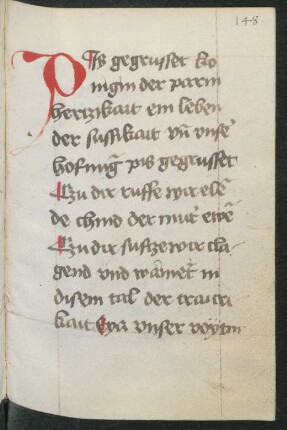 148
Pis gegrusset ko
nigin der parm
herczikait ein leben
der sussikait vn̄ vnse᷑
hofnūg pis gegrusset
Czu dir ruffe wir elē
de chind der mut᷑ eue
Czu dir suftze wir cla
gend vnd wainēt in
disem tal der traᷓri
kait Eya vnser